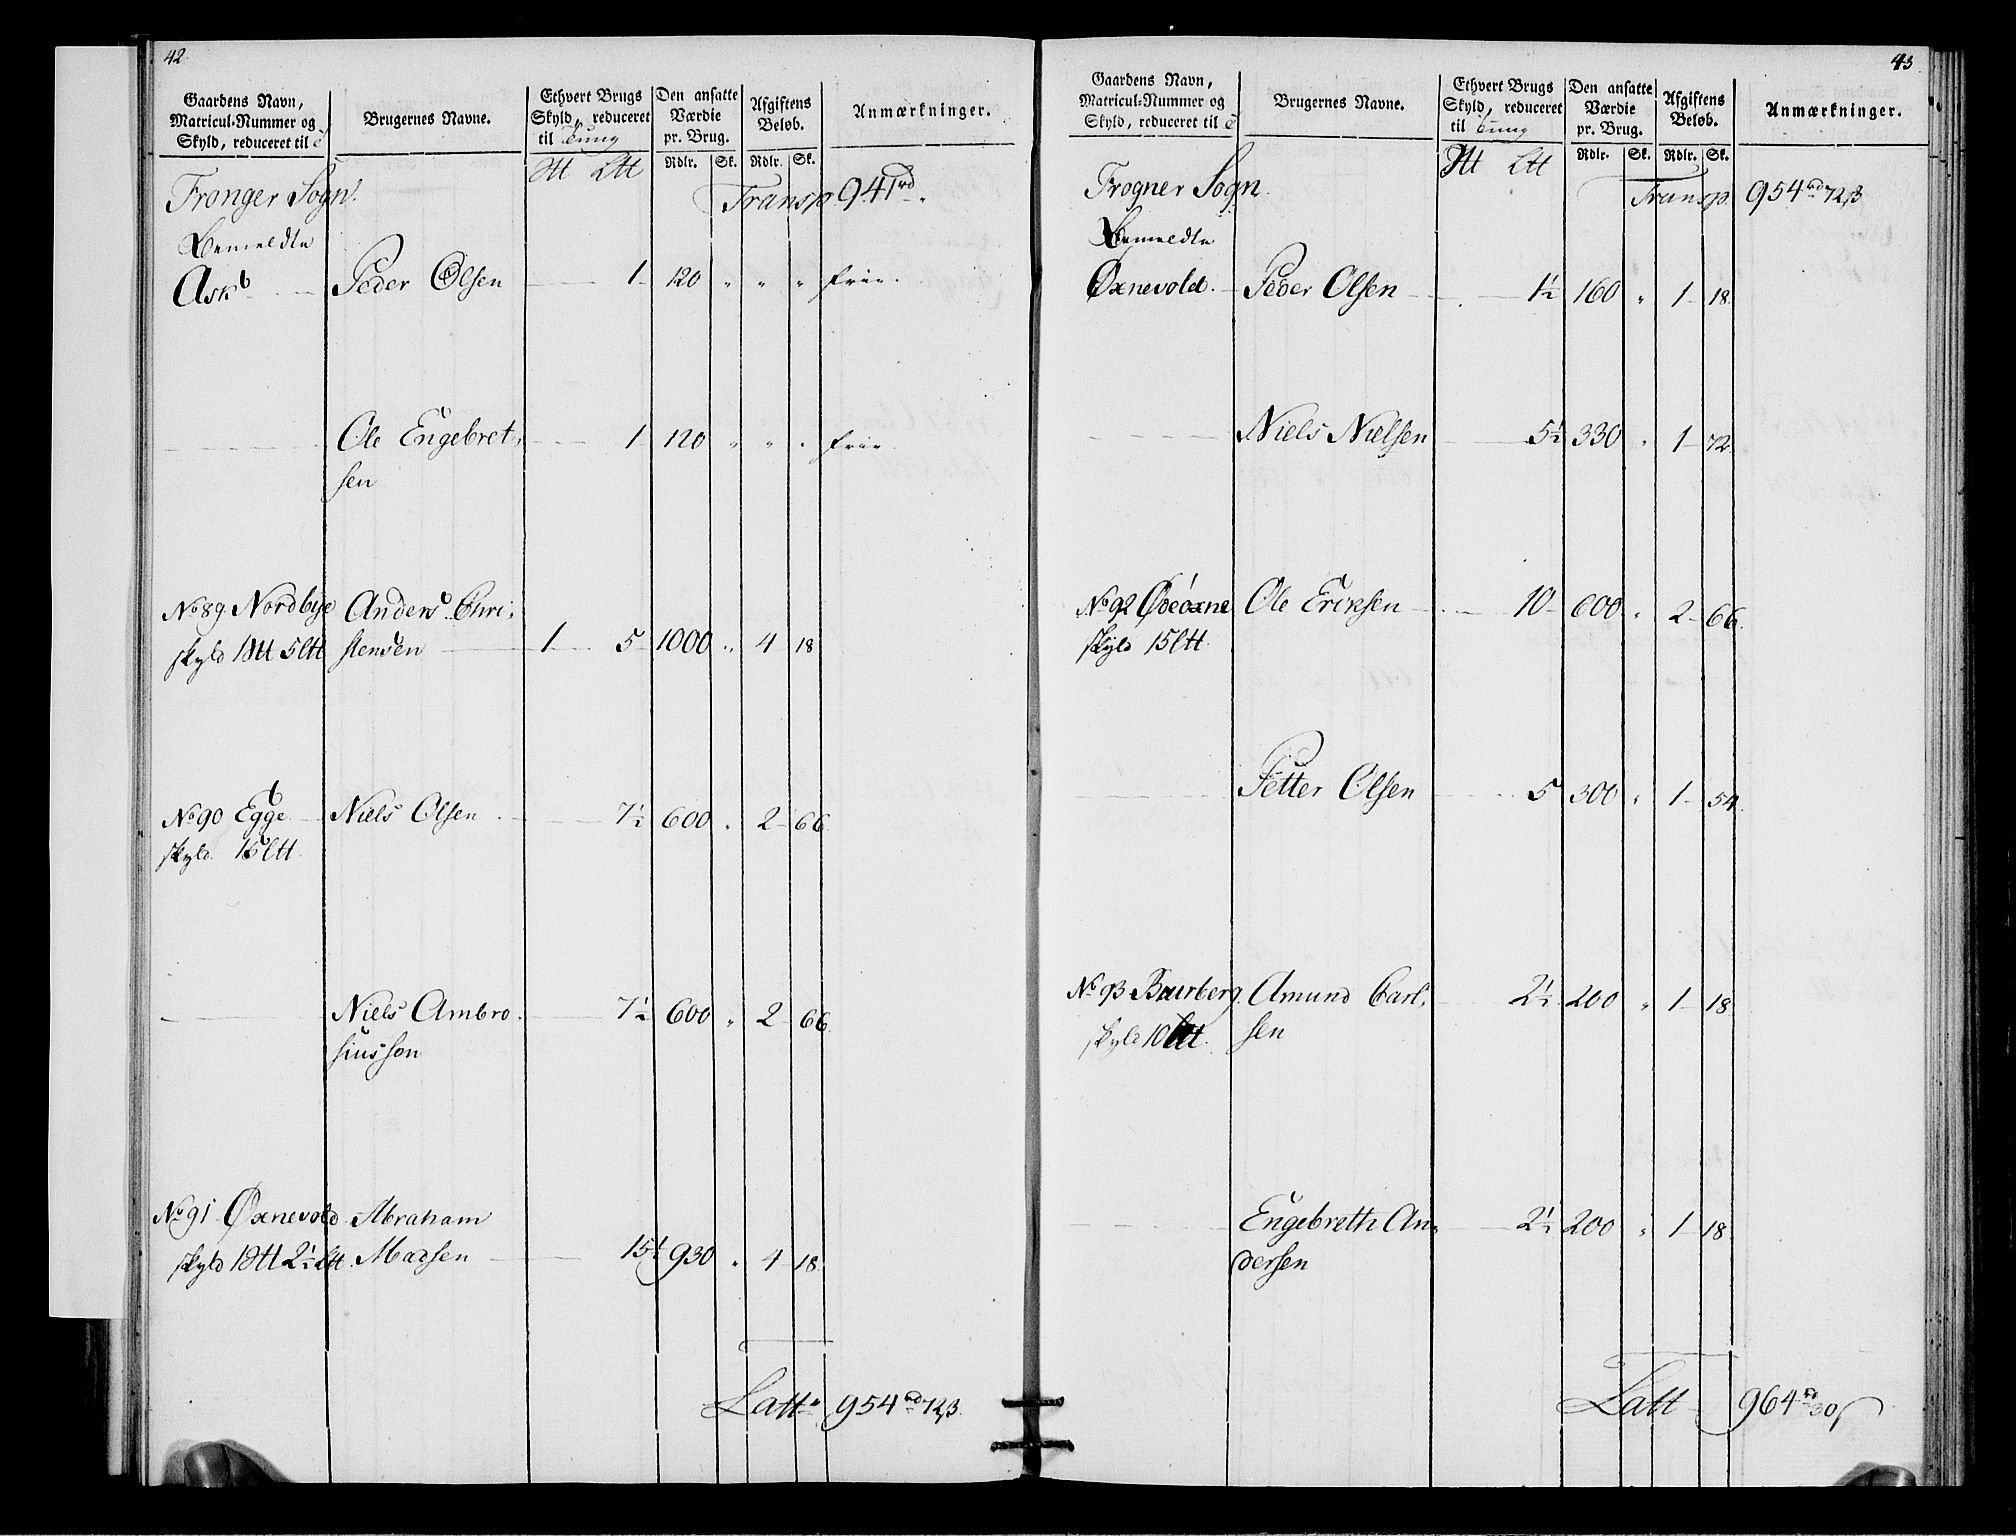 42
Gaardens Navn, Matricul-Nummer og Skyld, reduceret til
Brugernes Navne.
Ethvert Brugs Skyld, reduceret til Tung
Den ansatte Værdie pr. Brug.
Afgiftens Beløb.
Anmærkninger.
Rdlr. Sk. Rdlr. Sk.
Fronger Sogn. Transp 941 rd "
Bemeldte
Ask Peder Olsen 1 120 " " " frie.
Ole Engebret- 1 120 " " " frie
sen
No 89 Nordbye Anders Chri-
skyld 1 5 stensen 1 5 1000 " 4 18
No 90 Egge Niels Olsen 7½ 600 " 2 66
skyld 15
Niels Ambro- 7½ 600 " 2 66
siussøn
No 91 Oxnevold Abraham
skyld 1 2½ Madsen 15½ 930 " 4 18
Latt 954 rd 72 β
43
Gaardens Navn, Matricul-Nummer og Skyld, reduceret til
Brugernes Navne.
Ethvert Brugs Skyld, reduceret til Tung
Den ansatte Værdie pr. Brug.
Afgiftens Beløb.
Anmærkninger.
Rdlr. Sk. Rdlr. Sk.
Frogner Sogn. Transp. 954 rd 72 β
Bemeldte
Oxnevold Peder Olsen 1½ 160 " 1 18
Niels Nielsen 5½ 330 " 1 72
No 92 Ole Eriksen 10 600 " 2 66
skyld 15
Petter Olsen 5 300 " 1 54
No 93 Buerberg Amund Carl-
skyld 10 sen 2½ 200 " 1 18
Engebreth An- 2½ 200 " 1 18
dersen
Latt 964 rd 30 β